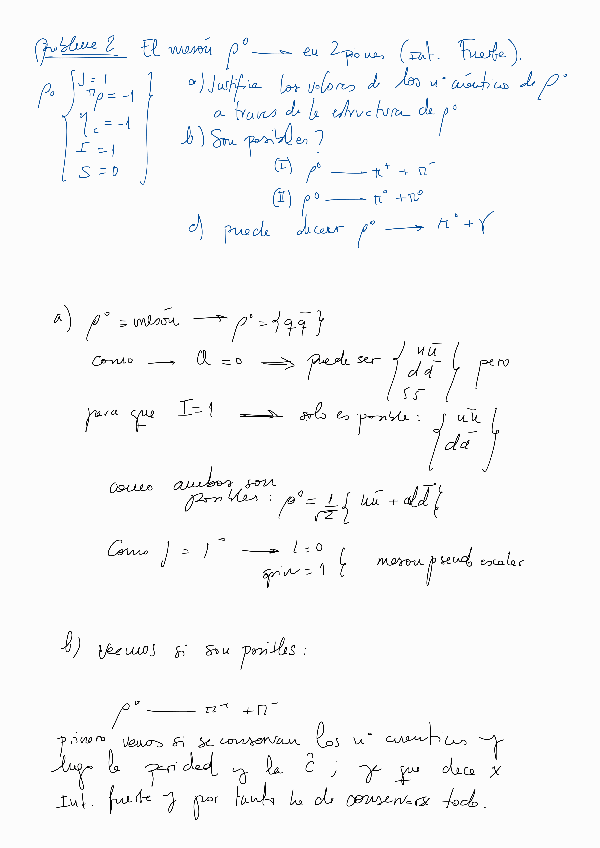 Problema 2 El mesón ρ⁰ —→ en 2 piones (Int. Fuerte).
ρ⁰ { J = 1
ηp = -1
ηc = -1
I = 1
S = 0 }
a) Justifica los valores de los nº cuánticos de ρ⁰
a traves de la estructura de ρ⁰
b) Son posibles?
(I) ρ⁰ —— π⁺ + π⁻
(II) ρ⁰ —— π⁰ + π⁰
c) puede decaer ρ⁰ —→ π⁰ + γ
a) ρ⁰ = mesón —→ ρ⁰ = {q q̄}
como —→ Q = 0 ⟹ puede ser { uū dd̄ ss̄ } pero
para que I = 1 ⟹ solo es posible: { uū dd̄ }
como ambos son
posibles: ρ⁰ = 1/√2 { uū + dd̄ }
Como J = 1⁻ —→ l = 0
spin = 1 } meson pseudo escalar
b) veamos si son posibles:
ρ⁰ —— π⁺ + π⁻
primero vemos si se conservan los nº cuanticos y
luego la paridad y la ĉ; ya que dece x
Int. fuerte y por tanto ha de conservarse todo.